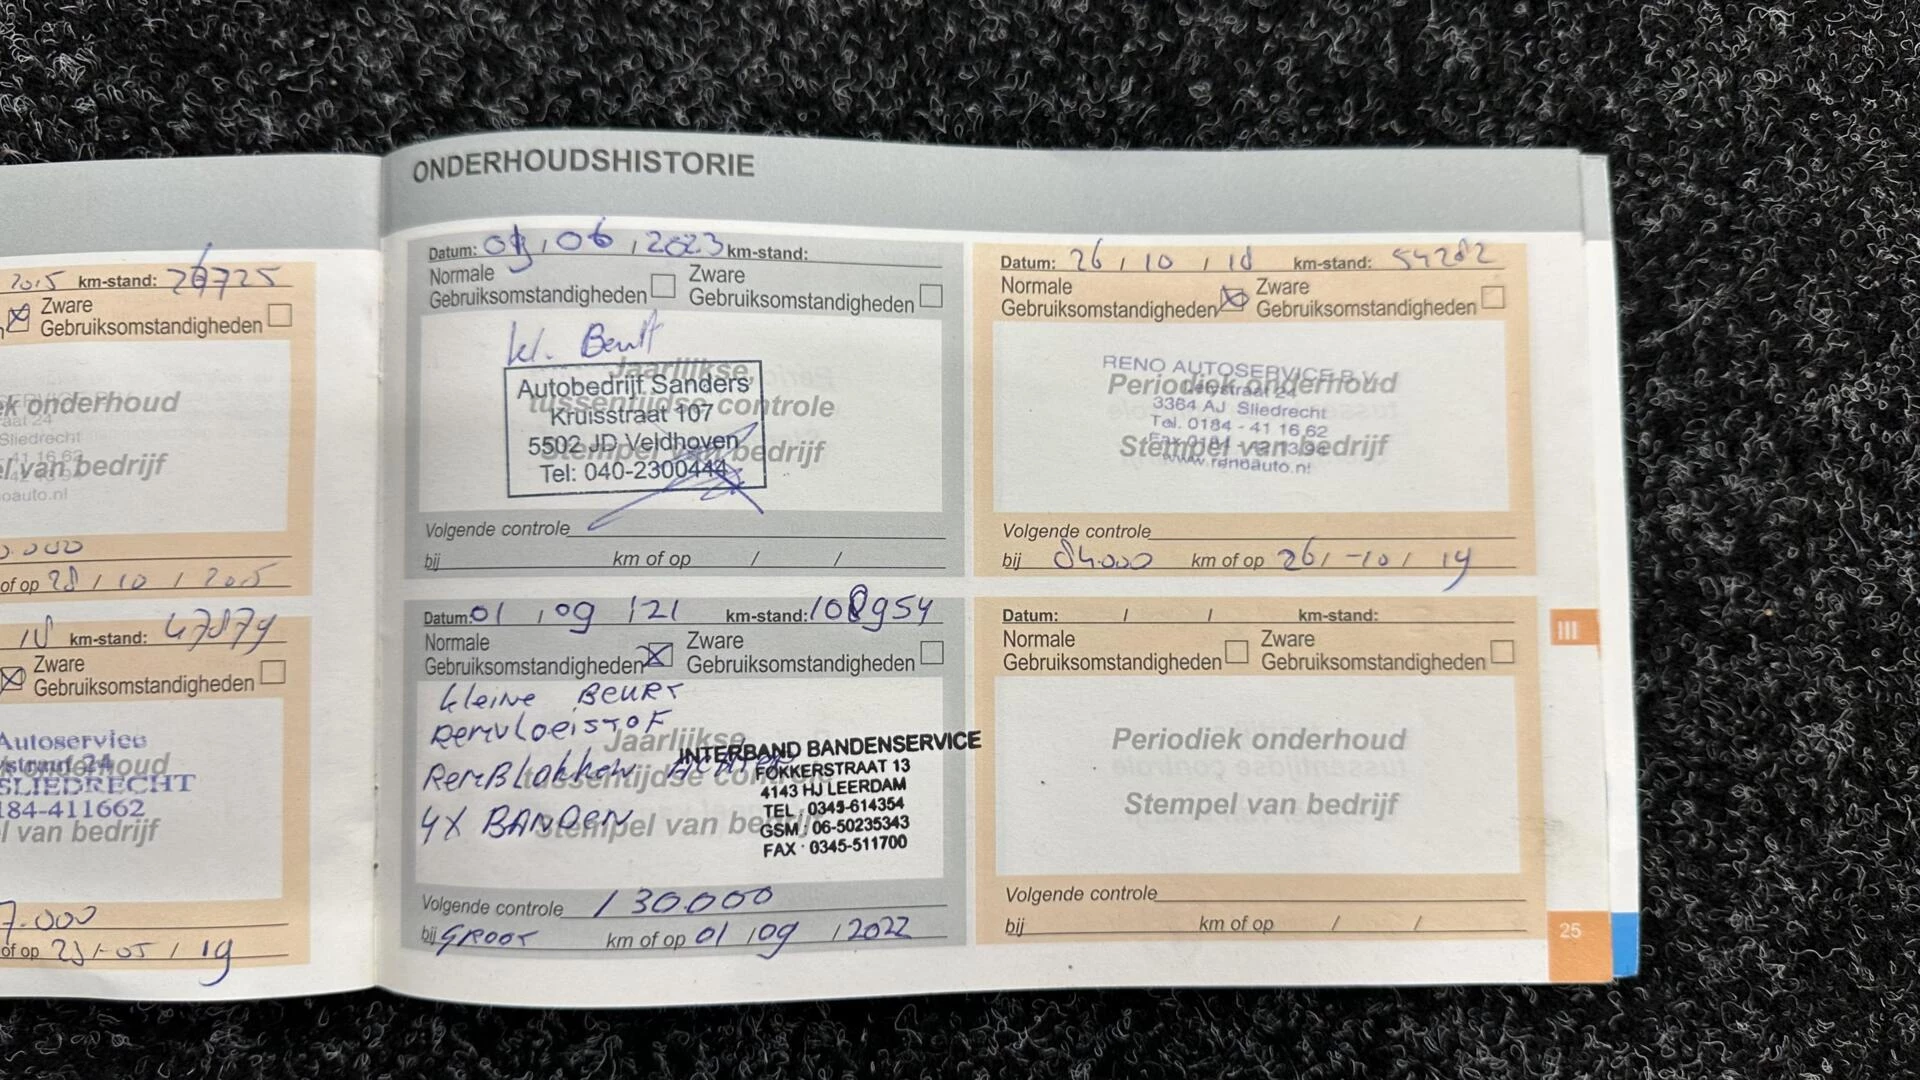 ONDERHOUDSHISTORIE
2015 km-stand: 26725
Zware
Gebruiksomstandigheden
ek onderhoud
Sliedrecht
41 16 62
el van bedrijf
oauto.nl
0.000
of op 28 / 10 / 2015
18 km-stand: 47879
Zware
Gebruiksomstandigheden
Autoservice
onderhoud
SLIEDRECHT
184-411662
l van bedrijf
7.000
of op 29/-05 / 19
Datum: 06 , 2023 km-stand:
Normale
Gebruiksomstandigheden
Zware
Gebruiksomstandigheden
kl. Beurt
Jaarlijkse,
tussentijdse controle
Stempel van bedrijf
Autobedrijf Sanders
Kruisstraat 107
5502 JD Veldhoven
Tel: 040-2300444
Volgende controle
bij km of op / /
Datum: 26 / 10 / 18 km-stand: 54282
Normale
Gebruiksomstandigheden
Zware
Gebruiksomstandigheden
RENO AUTOSERVICE B.V.
Periodiek onderhoud
Lelystraat 24
3364 AJ Sliedrecht
Tel. 0184 - 41 16 62
Stempel van bedrijf
www.renoauto.nl
Volgende controle
bij 84.000 km of op 26/-10/ 19
Datum: 01 / 09 / 21 km-stand: 108954
Normale
Gebruiksomstandigheden
Zware
Gebruiksomstandigheden
kleine BEURT
Remvloeistof
RemBlokken Achter
4X BANDEN
Jaarlijkse,
tussentijdse controle
Stempel van bedrijf
INTERBAND BANDENSERVICE
FOKKERSTRAAT 13
4143 HJ LEERDAM
TEL : 0345-614354
GSM : 06-50235343
FAX : 0345-511700
Volgende controle 130.000
bij GROOT km of op 01 / 09 / 2022
Datum: / / km-stand:
Normale
Gebruiksomstandigheden
Zware
Gebruiksomstandigheden
Periodiek onderhoud
Stempel van bedrijf
Volgende controle
bij km of op / /
III
25